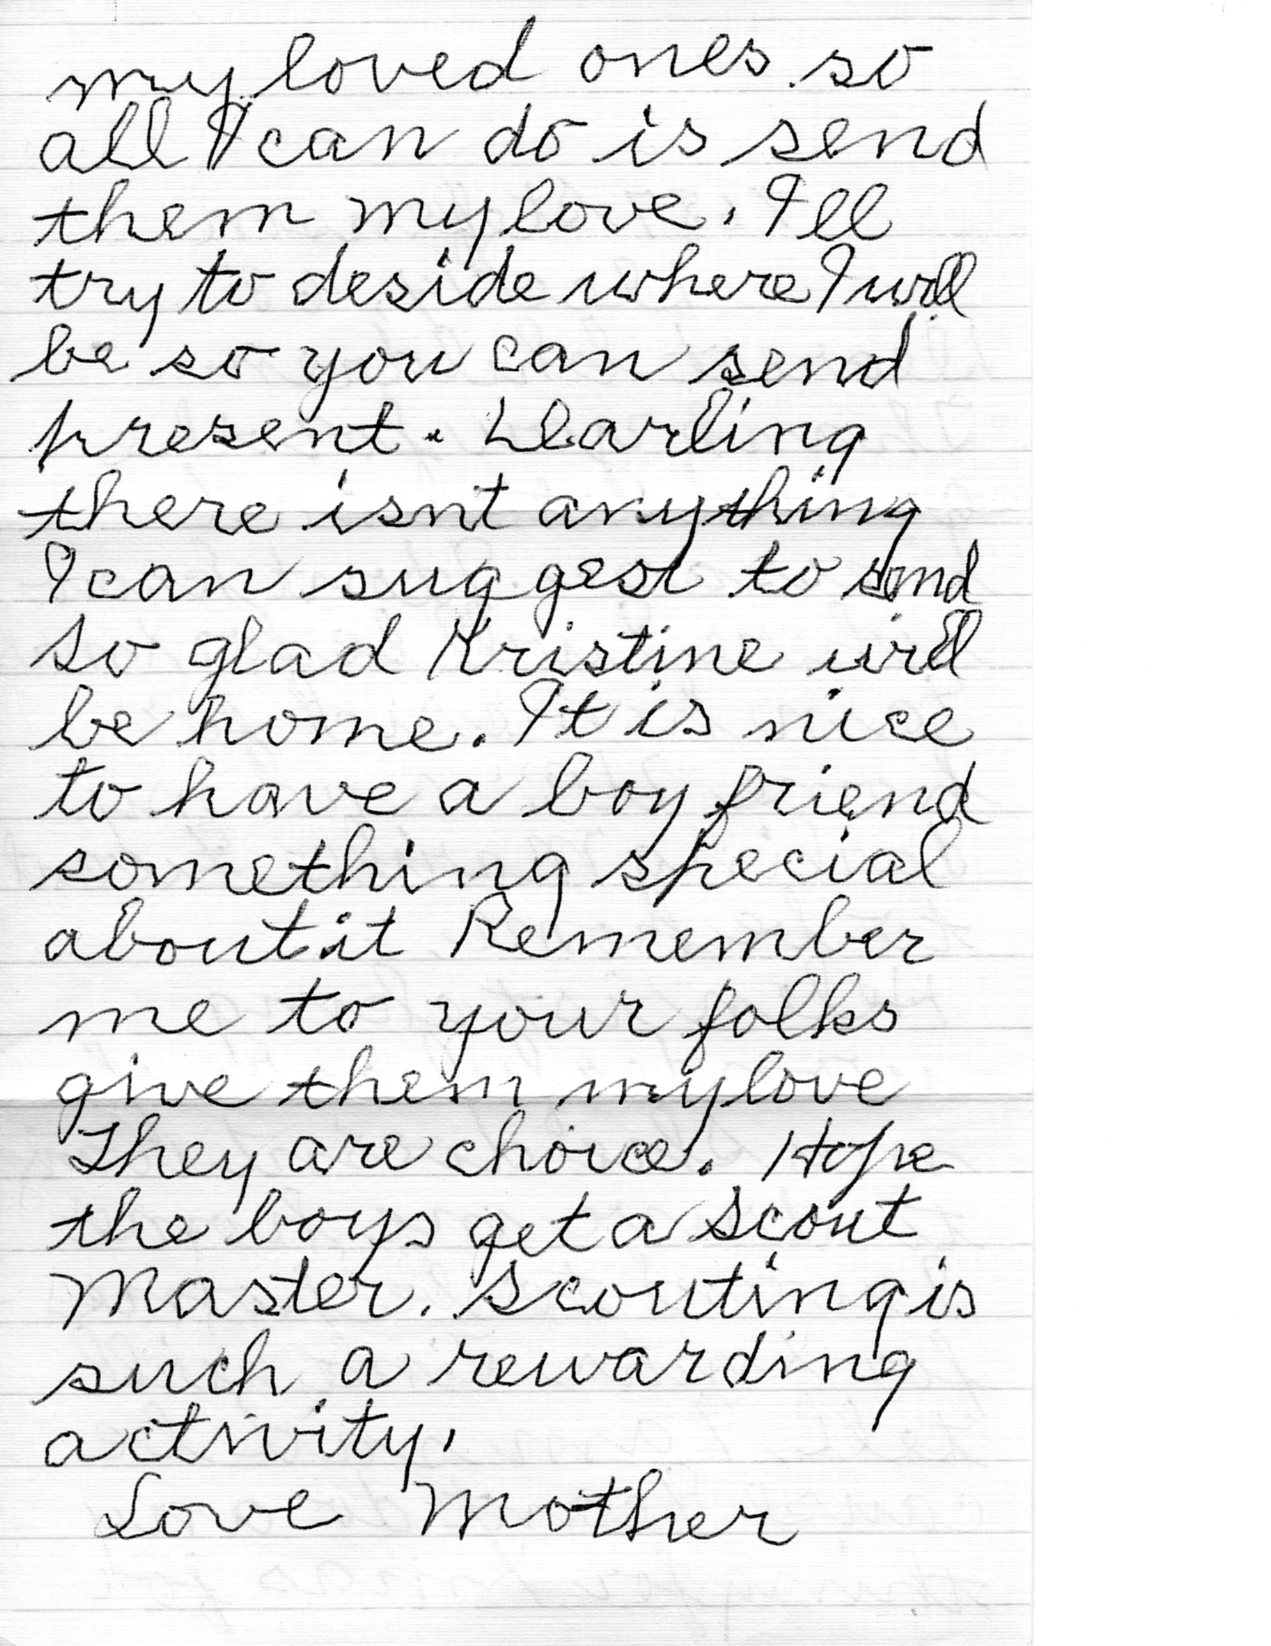 my loved ones so
all I can do is send
them my love. I'll
try to deside where I will
be so you can send
present. Darling
there isnt anything
I can suggest to send
So glad Kristine will
be home. It is nice
to have a boy friend
something special
about it Remember
me to your folks
give them my love
They are choice. Hope
the boys get a Scout
Master. Scouting is
such a rewarding
activity.
Love Mother